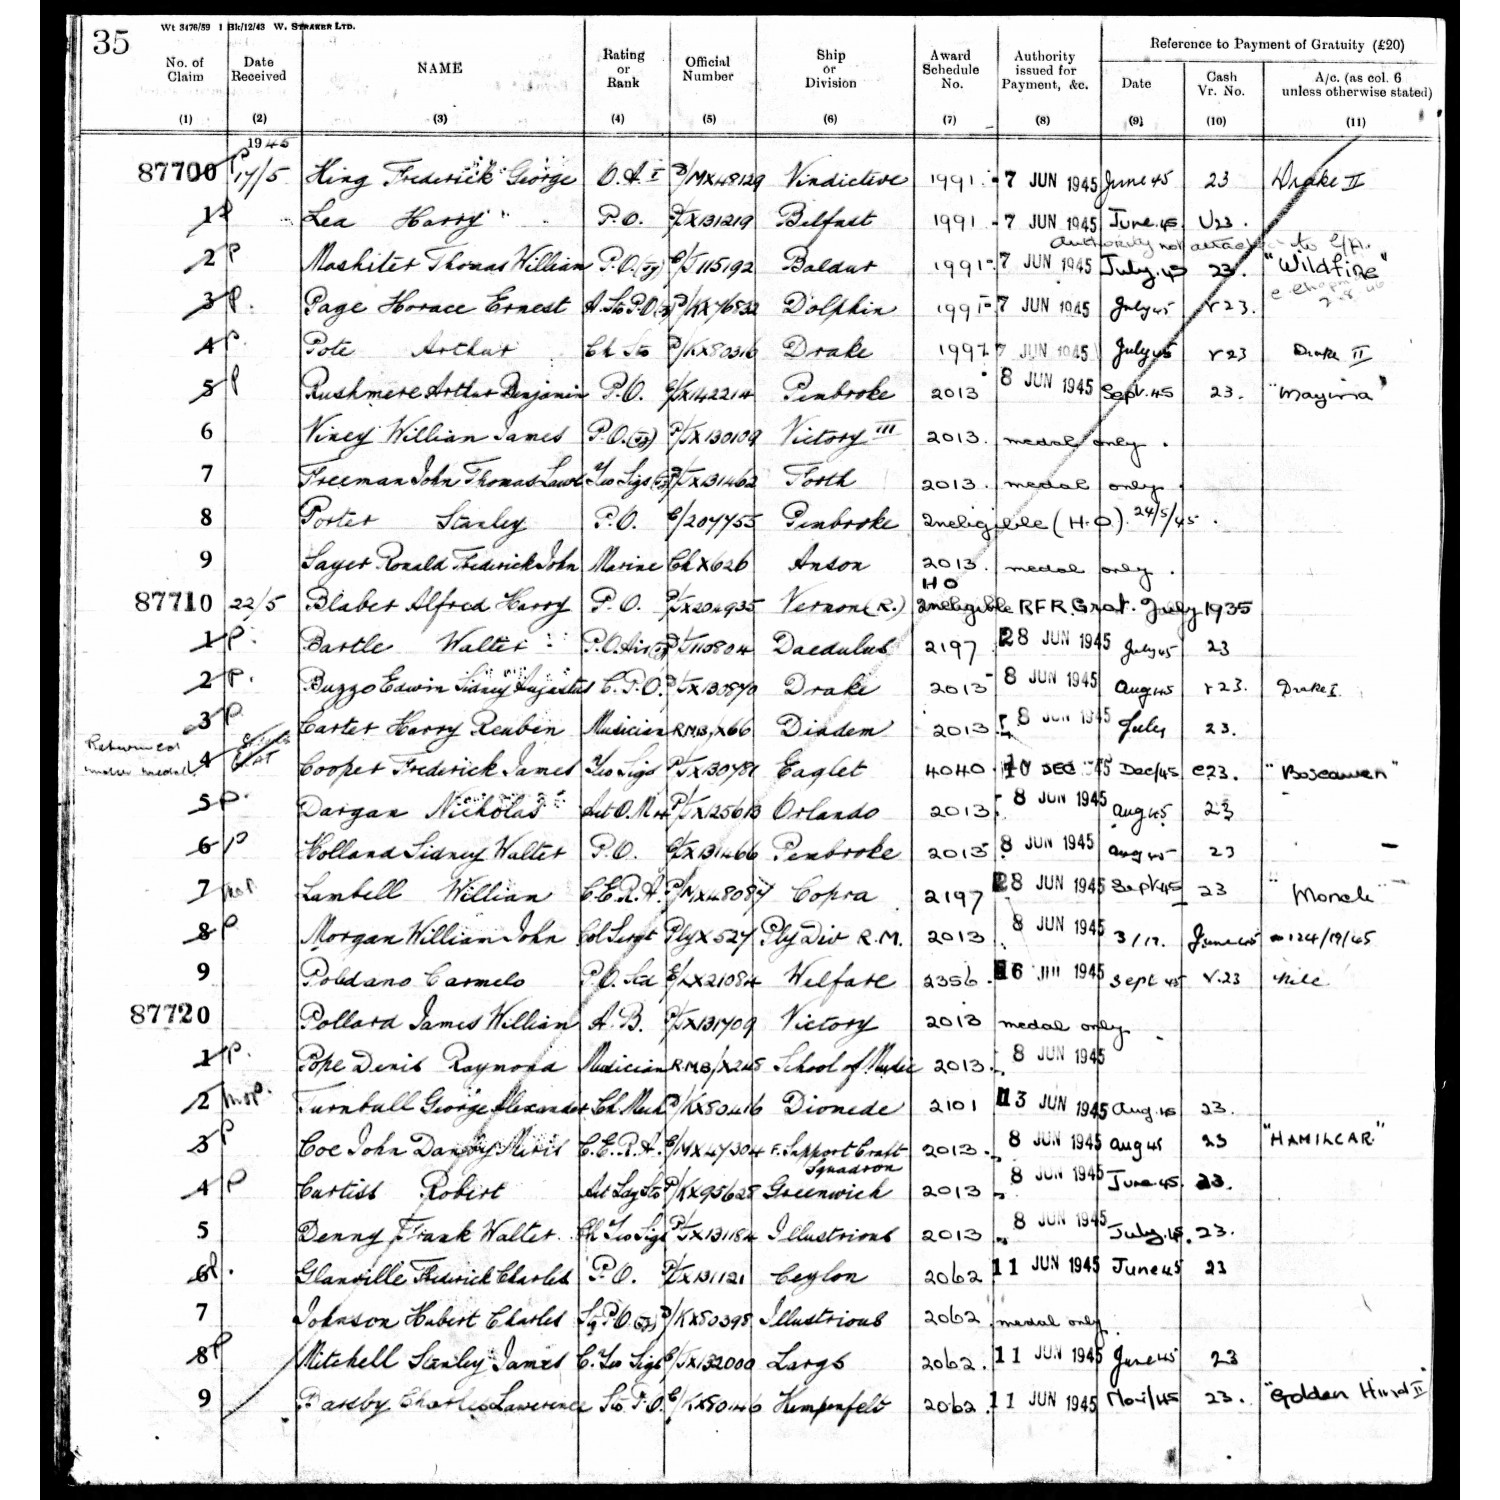 35
Wt 3476/59 1 Bk/12/43 W. STRAKER LTD.
No. of Claim (1) Date Received (2) NAME (3) Rating or Rank (4) Official Number (5) Ship or Division (6) Award Schedule No. (7) Authority issued for Payment, &c. (8) Reference to Payment of Gratuity (£20) Date (9) Cash Vr. No. (10) A/c. (as col. 6 unless otherwise stated) (11)
1945
87700 P 17/5 King Frederick George O.A. I P/MX48129 Vindictive 1991 7 JUN 1945 June 45 23 Drake II
1 P Lea Harry P.O. P/JX131219 Belfast 1991 7 JUN 1945 June 45 V23.
Authority not attached to
2 P Mashiter Thomas William P.O.(Ty) C/J115192 Baldur 1991 7 JUN 1945 July 45 23. "Wildfire"
3 P. Page Horace Ernest A.Sto P.O. P/KX76832 Dolphin 1991 7 JUN 1945 July 45 V23.
4 P. Pote Arthur Ch Sto P/KX80316 Drake 1997 7 JUN 1945 July 45 V23 Drake II
5 P Rushmere Arthur Benjamin P.O. C/JX142214 Pembroke 2013 8 JUN 1945 Sept. 45 23.
6 Viney William James P.O.(Ty) P/JX130109 Victory III 2013. medal only.
7 Freeman John Thomas Yeo Sigs P/JX131462 Forth 2013. medal only.
8 Porter Stanley P.O. C/207755 Pembroke Ineligible (H.O.). 24/5/45.
9 Sayer Ronald Frederick John Marine ChX626 Anson 2013. medal only.
HO
87710 22/5 Blaber Alfred Harry P.O. P/JX204935 Vernon (R.) Ineligible RFR Grat. July 1935
1 P. Bartle Walter P.O. Air P/J113804 Daedalus 2197 28 JUN 1945 July 45 23
2 P. Buzzo Edwin Sidney Augustus C.P.O. P/JX130870 Drake 2013 8 JUN 1945 Aug 45 V23. Drake I
3 P Carter Harry Reuben Musician RMB/X66 Diadem 2013 8 JUN 1945 July 23.
Returned under medal
4 Cooper Frederick James Yeo Sigs P/JX130781 Eaglet 4040 10 DEC 45 Dec/45 C23. "Boscawen"
5 P. Dargan Nicholas P/JX125613 Orlando 2013 8 JUN 1945 Aug 45 23
6 P Holland Sidney Walter P.O. C/JX131466 Pembroke 2013 8 JUN 1945 Aug 45 23
7 Lambell William C.E.R.A. P/MX48087 Copra 2197 28 JUN 1945 Sept 45 23
8 P Morgan William John Col Sergt PlyX527 Ply Div R.M. 2013 8 JUN 1945 3/17. June 45
9 Poldano Carmelo P.O. Std E/LX21084 Welfare 2356. 1945 Sept 45 V.23 Nile
87720 Pollard James William A.B. P/JX131709 Victory 2013 medal only.
1 P. Pope Denis Raymond Musician RMB/X245 School of Music 2013. 8 JUN 1945
2 Turnbull George Alexander Ch Mech P/KX80416 Diomede 2101 13 JUN 1945 Aug. 45 23.
3 P Coe John Danby C.E.R.A. C/MX47304 F. Support Craft Squadron 2013. 8 JUN 1945 Aug 45 23 "HAMILCAR."
4 P Curtiss Robert P/KX95628 Greenwich 2013 8 JUN 1945 June 45 23.
5 Denny Frank Walter Ch Yeo Sigs P/JX131184 Illustrious 2013 8 JUN 1945 July. 45. 23.
6 P. Glanville Frederick Charles P.O. P/JX131121 Ceylon 2062 11 JUN 1945 June 45 23
7 Johnson Hubert Charles P/KX80398 Illustrious 2062 medal only.
8 P Mitchell Stanley James C. Yeo Sigs P/JX132000 Largs 2062. 11 JUN 1945 June 45 23
9 Barsby Charles Lawerence Sto P.O. C/KX80146 Kempenfelt 2062. 11 JUN 1945 23. "Golden Hind II"